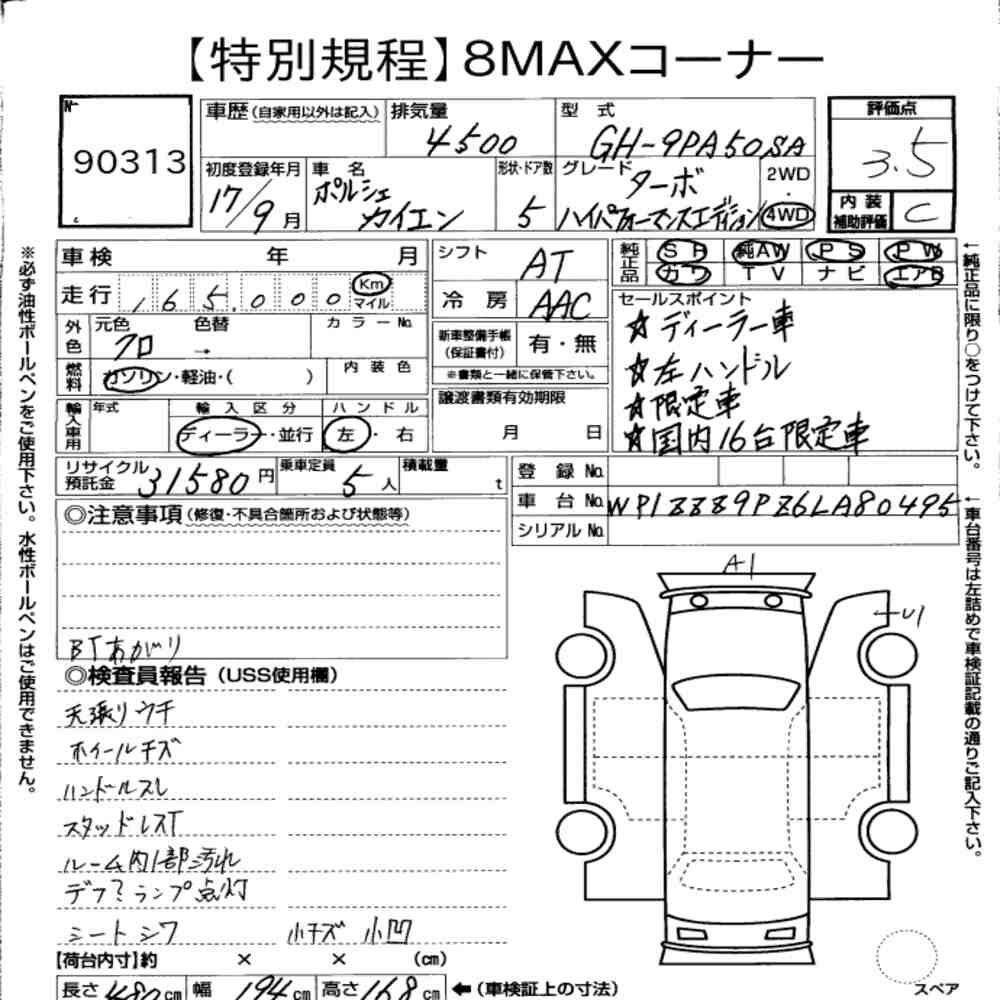 【特別規程】8MAXコーナー
No
90313
車歴(自家用以外は記入)
排気量
4500
型 式
GH-9PA50SA
評価点
3.5
初度登録年月
17/9月
車 名
ポルシェ
カイエン
形状・ドア数
5
グレード
ターボ
ハイパフォーマンスエディション
2WD
・
4WD
内装
補助評価
C
車検 年 月
走行 165,000 Km
マイル
シフト
AT
冷 房
AAC
純正品
SR 純AW PS PW
カワ TV ナビ エアB
セールスポイント
☆ディーラー車
☆左ハンドル
☆限定車
☆国内16台限定車
外色
元色 色替
クロ →
カラーNo.
燃料
ガソリン・軽油・( )
内装色
新車整備手帳
(保証書付)
有・無
※書類と一緒に保管下さい。
輸入車用
年式
輸入区分
ディーラー・並行
ハンドル
左・右
譲渡書類有効期限
月 日
リサイクル
預託金
31580円
乗車定員
5人
積載量
t
登 録 No.
車 台 No. WP1ZZZ9PZ6LA80495
シリアル No.
◎注意事項(修復・不具合箇所および状態等)
BTあがり
◎検査員報告(USS使用欄)
天張りウチ
ホイールキズ
ハンドルスレ
スタッドレスT
ルーム内1部汚れ
デフ?ランプ点灯
シートシワ 小キズ 小凹
A1
U1
【荷台内寸】約 × × (cm)
長さ480cm 幅194cm 高さ168cm ←(車検証上の寸法)
スペア
※必ず油性ボールペンをご使用下さい。水性ボールペンはご使用できません。
←純正品に限り○をつけて下さい。
←車台番号は左詰めで車検証記載の通りご記入下さい。